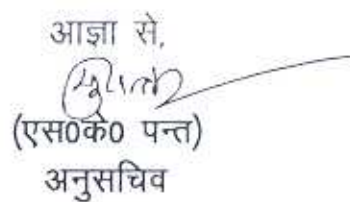 आज्ञा से,
(एस0के0 पन्त)
अनुसचिव